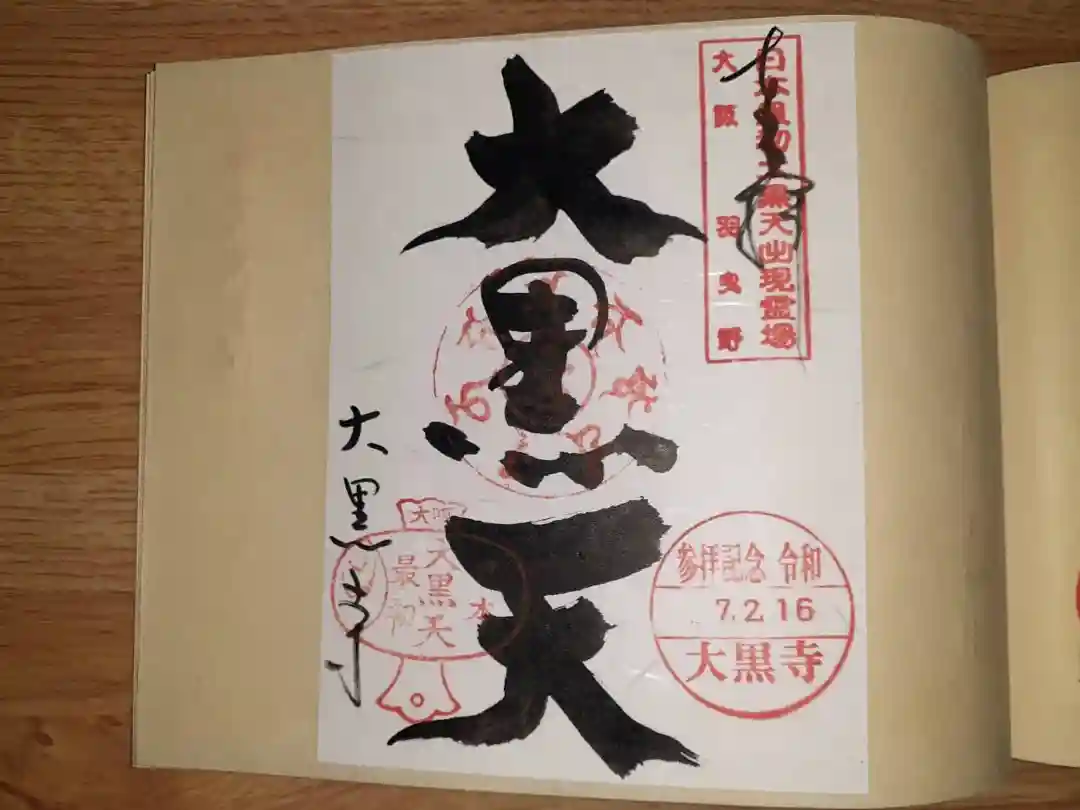 日本最初大黒天出現霊場
大阪羽曳野
大黒天
参拝記念 令和
7.2.16
大黒寺
大阪
本
大黒天
最初
大黒寺